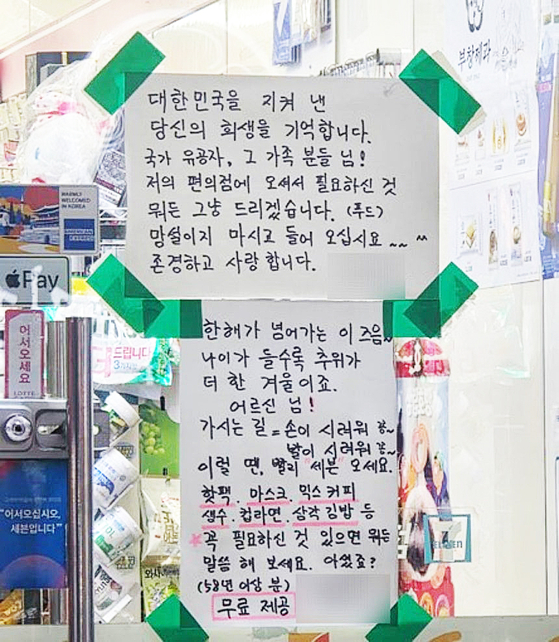 대한민국을 지켜 낸
당신의 희생을 기억합니다.
국가 유공자, 그 가족 분들 님!
저의 편의점에 오셔서 필요하신 것
뭐든 그냥 드리겠습니다. (푸드)
맘설이지 마시고 들어 오십시요 ~~ ^^
존경하고 사랑합니다.
한해가 넘어가는 이 즈음~
나이가 들수록 추위가
더 한 겨울이죠.
어르신 님!
가시는 길 = 손이 시려워 꽁~
발이 시려워 꽁~
이럴 땐, 빨리 "세븐" 오세요.
핫팩. 마스크. 믹스커피
생수. 컵라면. 삼각김밥 등
★꼭 필요하신 것 있으면 뭐든
말씀 해 보세요. 아셨죠?
(58년 이상 분)
무료 제공
부창제과
WARMLY
WELCOMED
IN KOREA
AMERICAN
EXPRESS
Pay
어서오세요
LOTTE
드립니다
"어서오십시오,
세븐입니다"